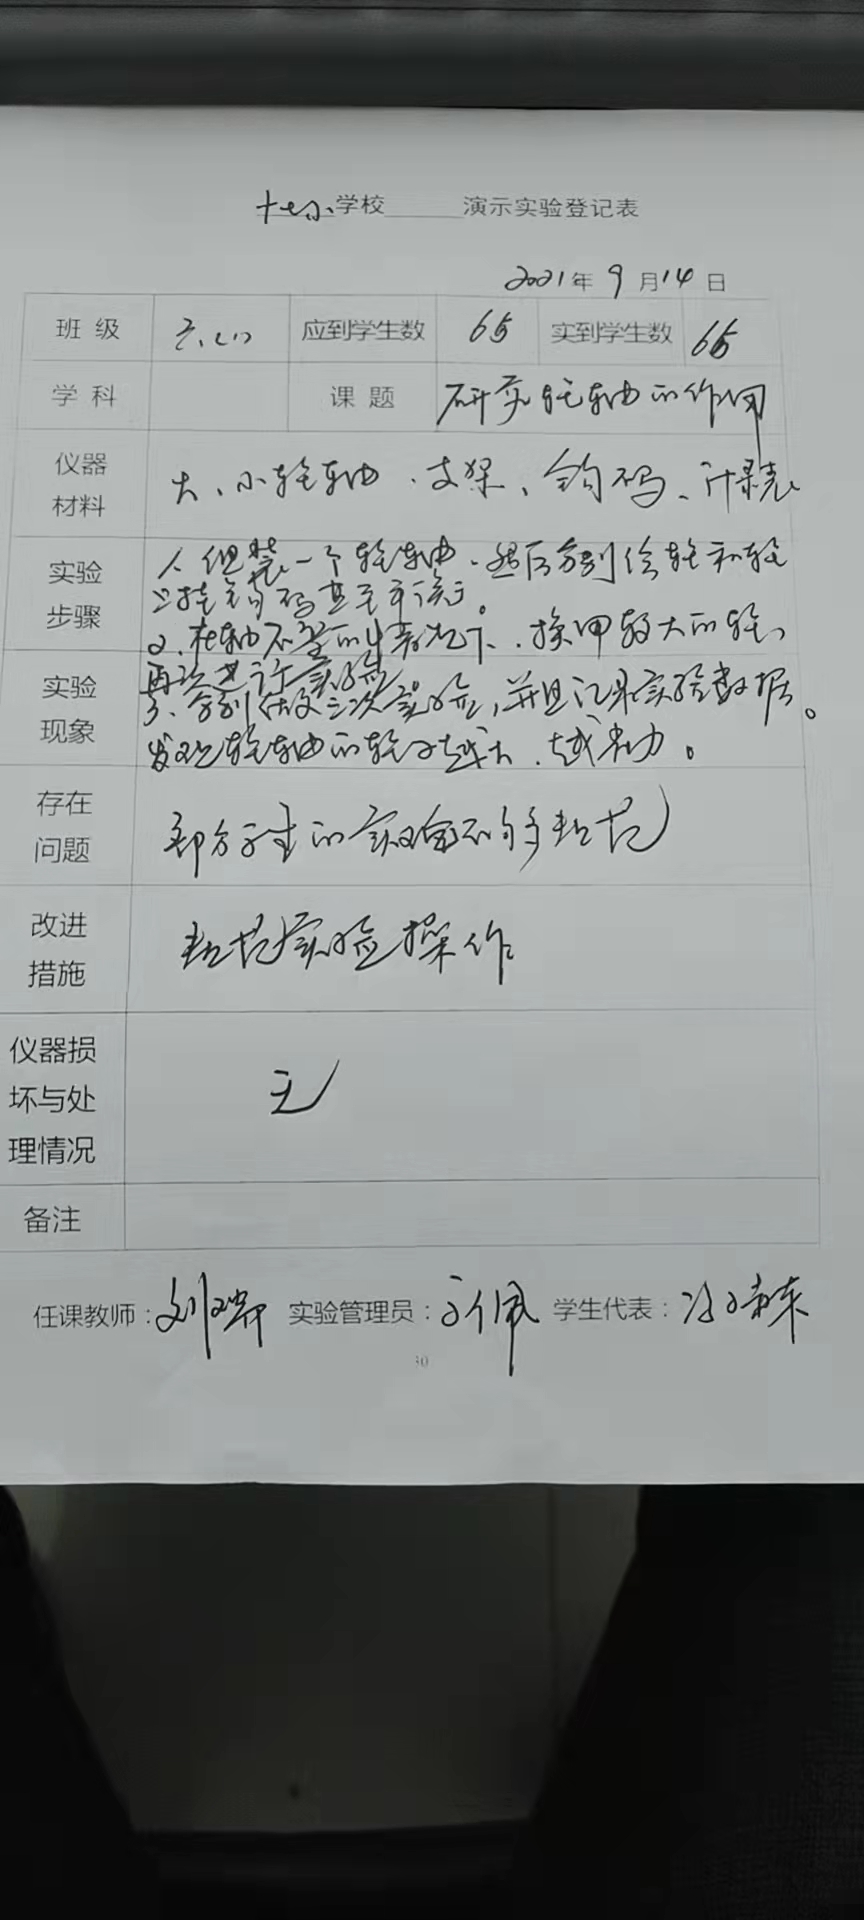 十七小学校______演示实验登记表
2021年9月14日
班级 应到学生数 65 实到学生数 65
学科 课题 研究轮轴的作用
仪器材料 大、小轮轴、支架、钩码、记录表
实验步骤 1、组装一个轮轴,然后分别给轮和轴
上挂钩码直至平衡。
2、在轴不变的情况下,换用较大的轮,
再次进行实验。
实验现象 3、分别做三次实验,并且记录实验数据。
发现轮轴的轮子越大,越省力。
存在问题 部分学生的实验不够规范
改进措施 规范实验操作
仪器损坏与处理情况 无
备注
任课教师: 实验管理员: 学生代表:
30